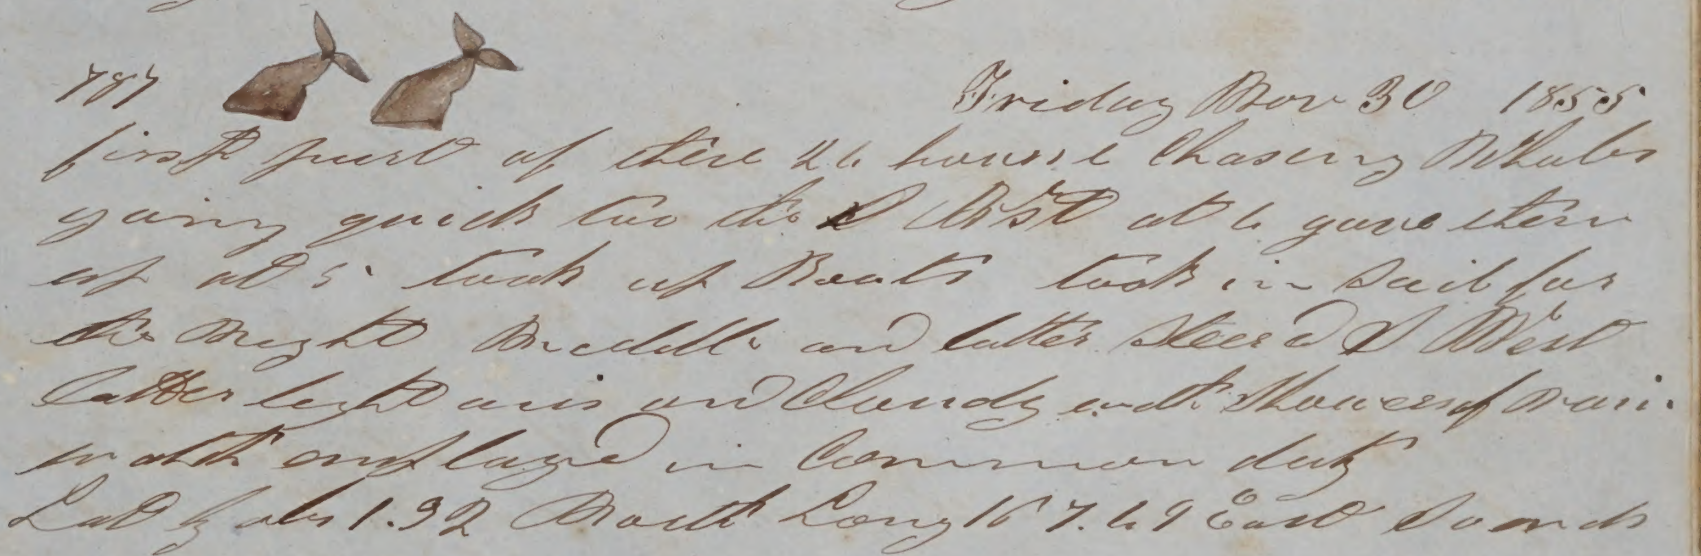 787 Friday Nov 30 1855
first part of these 24 hours Chasing Whales
going quick too the S West at 4 gave them
up at 5 took up Boats took in Sail for
the Night Middle and latter Steerd S West
Latter light airs and Cloudy with Showers of rain
watch employed in Common duty
Lat by obs 1.32 North Long 167.49 East